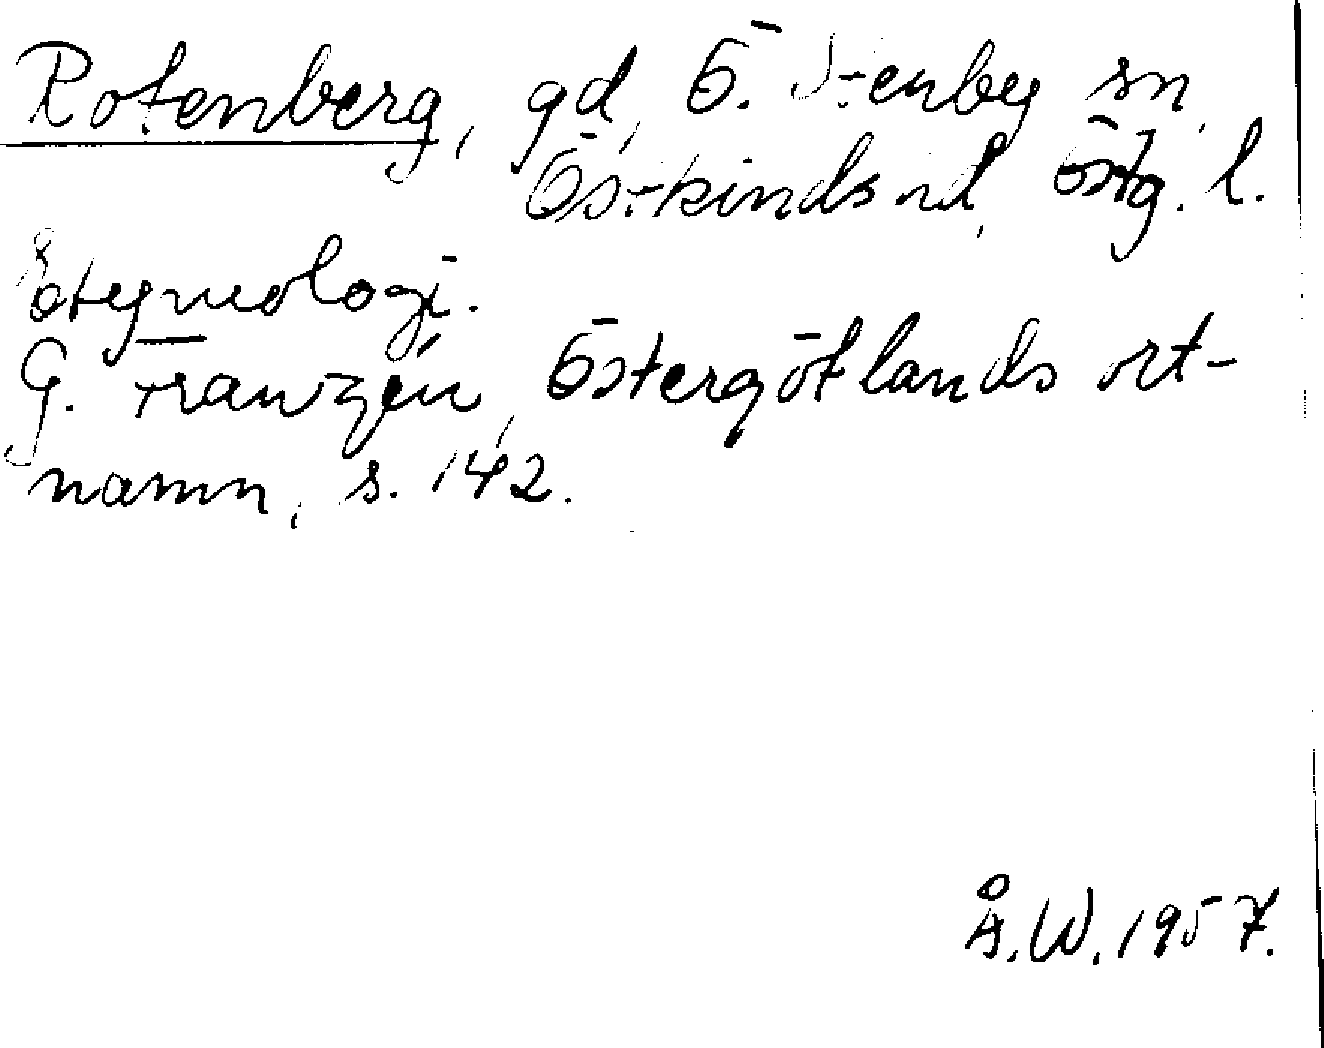 Rotenberg, gd, Ö. Stenby sn,
Östkinds hd, Östg. l.
Etymologi.
G. Franzén, Östergötlands ort-
namn, s. 142.
Å.W. 1957.